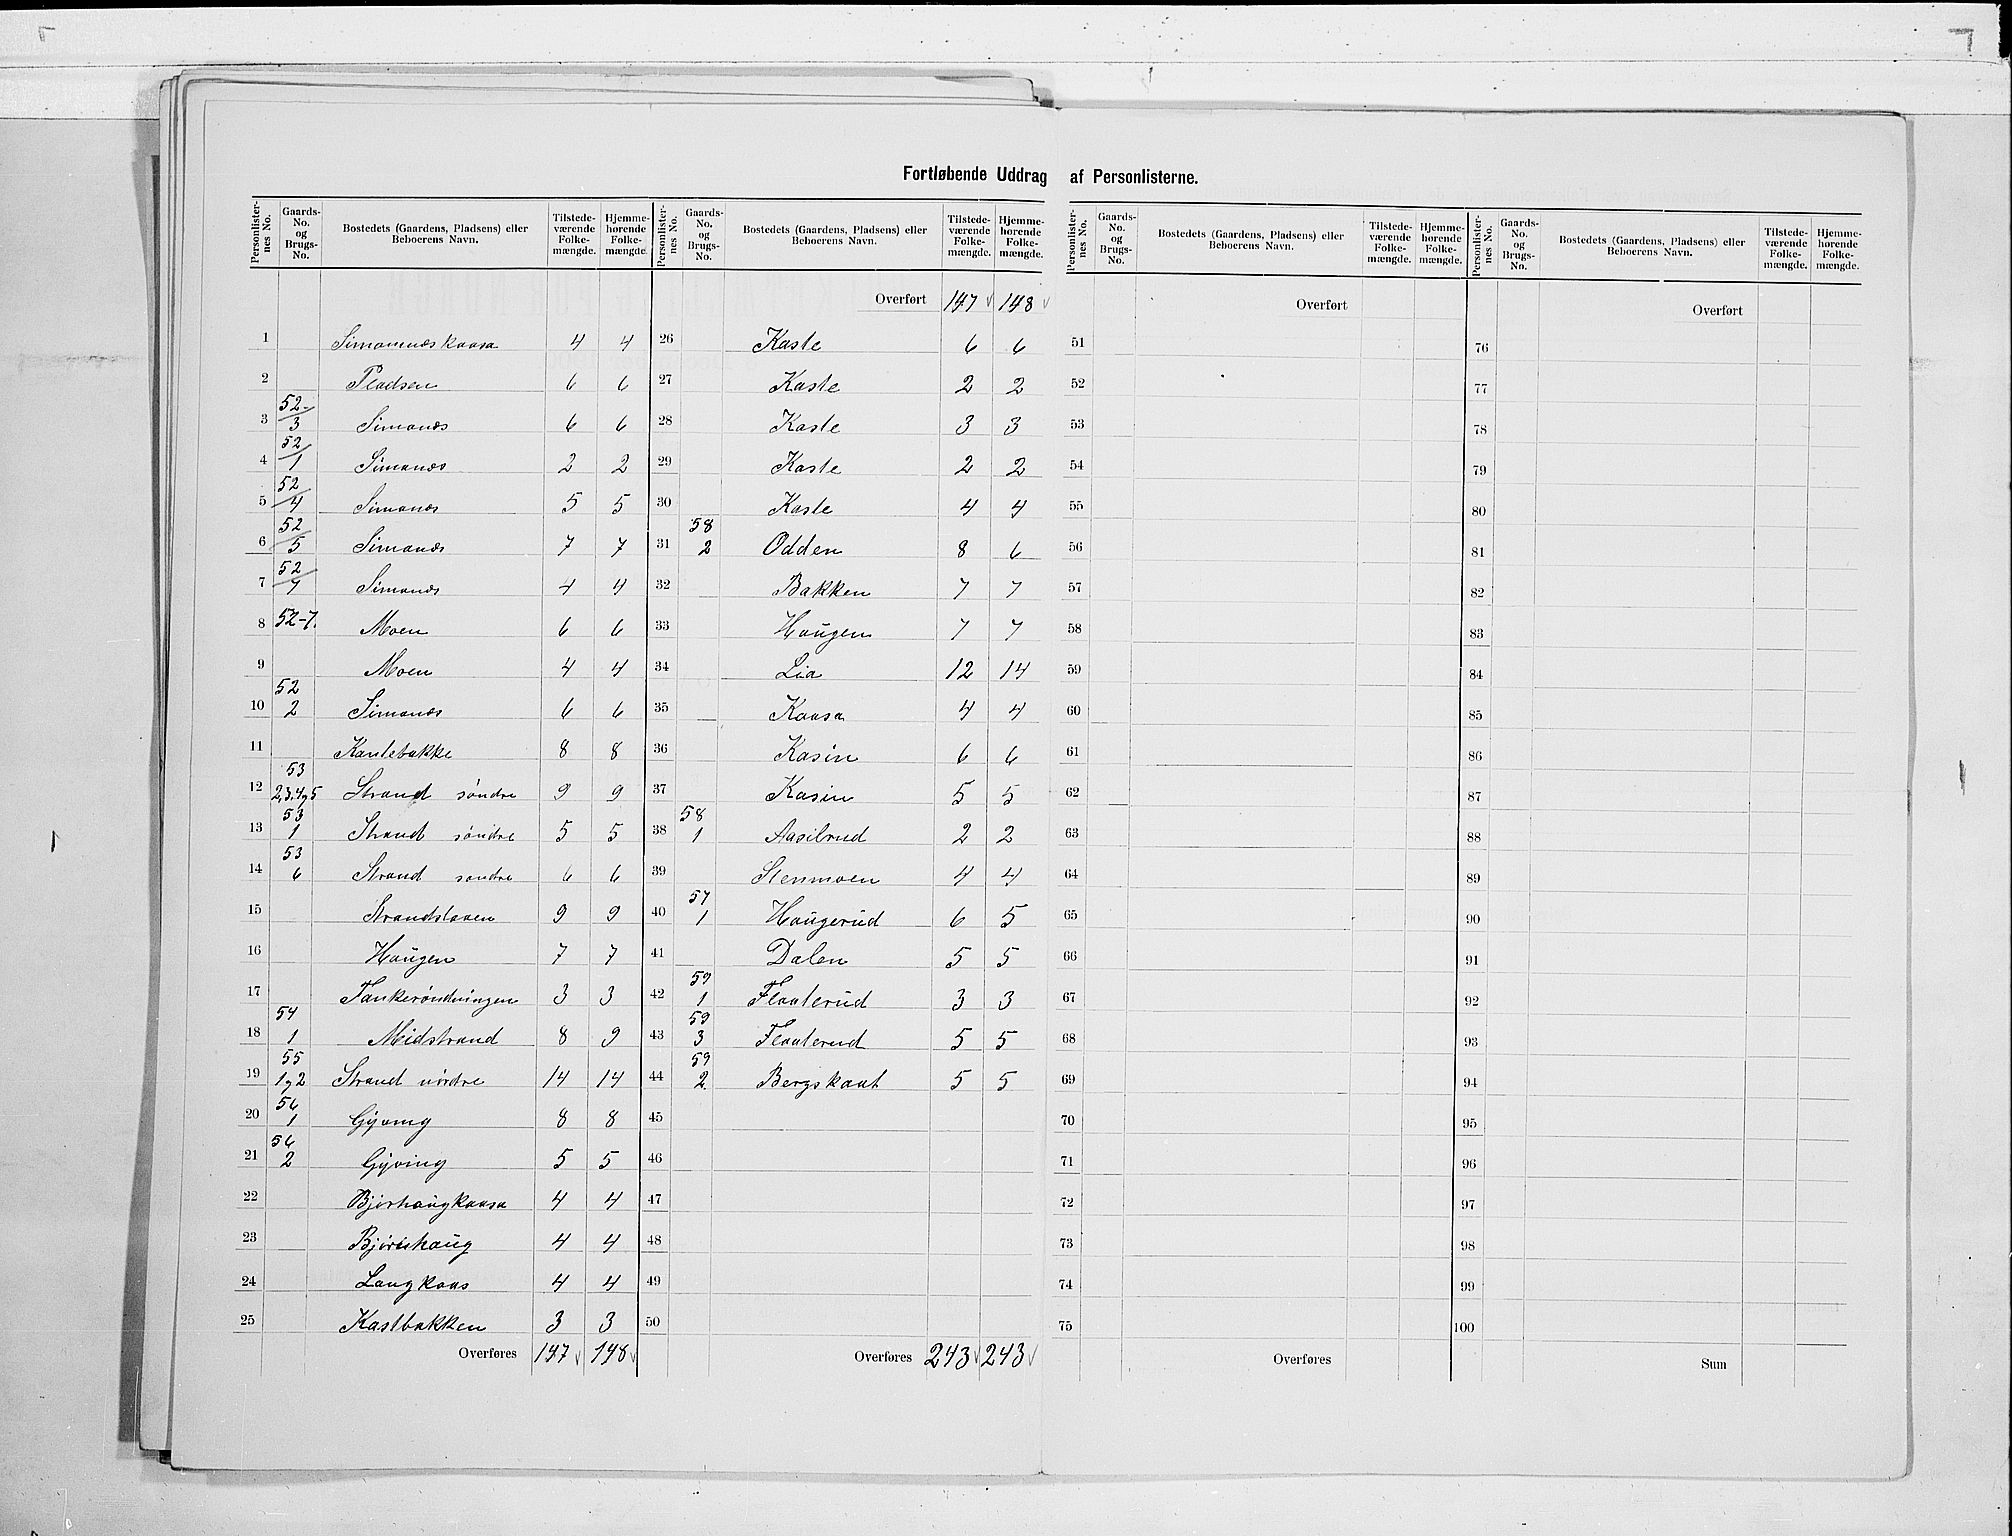 Fortløbende Uddrag af Personlisterne.
Personlisternes No. Gaards-No. og Brugs-No. Bostedets (Gaardens, Pladsens) eller Beboerens Navn. Tilstedeværende Folkemængde. Hjemmehørende Folkemængde.
1 Simonnæskaasa 4 4
2 Pladsen 6 6
3 52-/3 Simonæs 6 6
4 52/1 Simonæs 2 2
5 52/4 Simonæs 5 5
6 52/5 Simonæs 7 7
7 52/7 Simonæs 4 4
8 52-7. Moen 6 6
9 Moen 4 4
10 52 2 Simonæs 6 6
11 Kantebakke 8 8
12 53 2,3,4,5 Strand søndre 9 9
13 53 1 Strand søndre 5 5
14 53 6 Strand søndre 6 6
15 Strandstaaen 9 9
16 Haugen 7 7
17 3 3
18 54 1 Midstrand 8 9
19 55 1,2 Strand nordre 14 14
20 56 1 Gjøving 8 8
21 56 2 Gjøving 5 5
22 Bjørhaugkaasa 4 4
23 Bjørnhaug 4 4
24 Langkaas 4 4
25 Kastbakken 3 3
Overføres 147 148
Personlisternes No. Gaards-No. og Brugs-No. Bostedets (Gaardens, Pladsens) eller Beboerens Navn. Tilstedeværende Folkemængde. Hjemmehørende Folkemængde.
Overført 147 148
26 Kaste 6 6
27 Kaste 2 2
28 Kaste 3 3
29 Kaste 2 2
30 Kaste 4 4
31 58 2 Odden 8 6
32 Bakken 7 7
33 Haugen 7 7
34 Lia 12 14
35 Kaasa 4 4
36 Kasin 6 6
37 Kasin 5 5
38 58 1 Aasilrud 2 2
39 Stenmoen 4 4
40 57 1 Haugerud 6 5
41 Dalen 5 5
42 59 1 Flaaterud 3 3
43 59 3 Flaaterud 5 5
44 59 2 Bergskaat 5 5
45
46
47
48
49
50
Overføres 243 243
Personlisternes No. Gaards-No. og Brugs-No. Bostedets (Gaardens, Pladsens) eller Beboerens Navn. Tilstedeværende Folkemængde. Hjemmehørende Folkemængde.
Overført
51
52
53
54
55
56
57
58
59
60
61
62
63
64
65
66
67
68
69
70
71
72
73
74
75
Overføres
Personlisternes No. Gaards-No. og Brugs-No. Bostedets (Gaardens, Pladsens) eller Beboerens Navn. Tilstedeværende Folkemængde. Hjemmehørende Folkemængde.
Overført
76
77
78
79
80
81
82
83
84
85
86
87
88
89
90
91
92
93
94
95
96
97
98
99
100
Sum